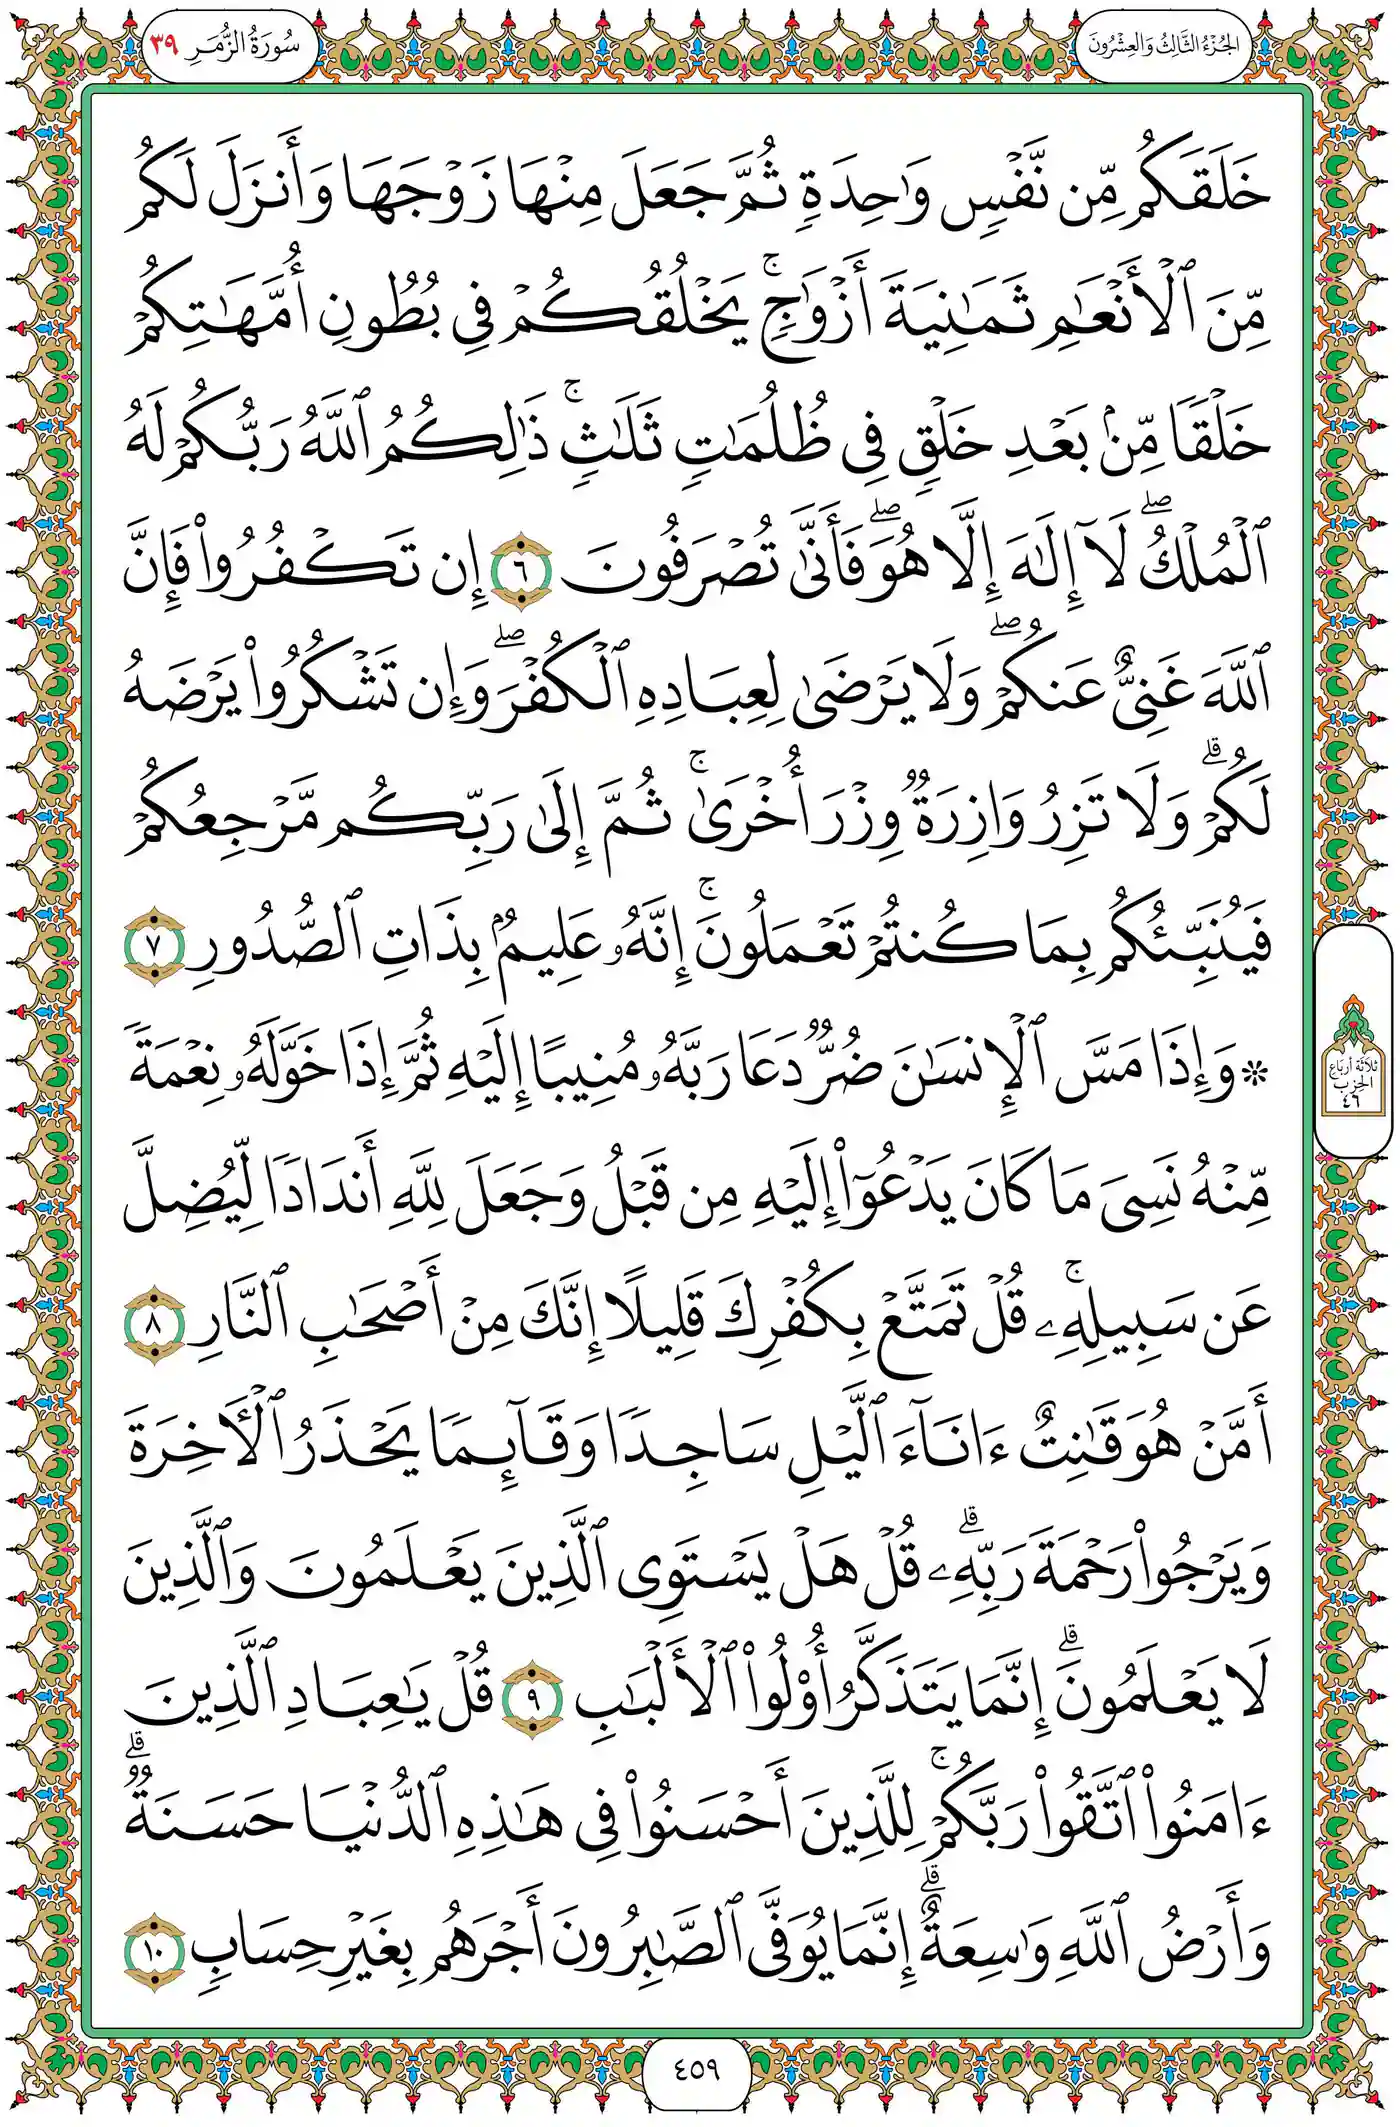 الجُزْءُ الثَّالِثُ وَالعِشْرُونَ
سُورَةُ الزُّمَرِ ٣٩
خَلَقَكُم مِّن نَّفۡسٖ وَٰحِدَةٖ ثُمَّ جَعَلَ مِنۡهَا زَوۡجَهَا وَأَنزَلَ لَكُم
مِّنَ ٱلۡأَنۡعَٰمِ ثَمَٰنِيَةَ أَزۡوَٰجٖۚ يَخۡلُقُكُمۡ فِي بُطُونِ أُمَّهَٰتِكُمۡ
خَلۡقٗا مِّنۢ بَعۡدِ خَلۡقٖ فِي ظُلُمَٰتٖ ثَلَٰثٖۚ ذَٰلِكُمُ ٱللَّهُ رَبُّكُمۡ لَهُ
ٱلۡمُلۡكُۖ لَآ إِلَٰهَ إِلَّا هُوَۖ فَأَنَّىٰ تُصۡرَفُونَ ٦ إِن تَكۡفُرُواْ فَإِنَّ
ٱللَّهَ غَنِيٌّ عَنكُمۡۖ وَلَا يَرۡضَىٰ لِعِبَادِهِ ٱلۡكُفۡرَۖ وَإِن تَشۡكُرُواْ يَرۡضَهُ
لَكُمۡۗ وَلَا تَزِرُ وَازِرَةٞ وِزۡرَ أُخۡرَىٰۚ ثُمَّ إِلَىٰ رَبِّكُم مَّرۡجِعُكُمۡ
فَيُنَبِّئُكُم بِمَا كُنتُمۡ تَعۡمَلُونَۚ إِنَّهُۥ عَلِيمُۢ بِذَاتِ ٱلصُّدُورِ ٧
۞ وَإِذَا مَسَّ ٱلۡإِنسَٰنَ ضُرّٞ دَعَا رَبَّهُۥ مُنِيبًا إِلَيۡهِ ثُمَّ إِذَا خَوَّلَهُۥ نِعۡمَةٗ
مِّنۡهُ نَسِيَ مَا كَانَ يَدۡعُوٓاْ إِلَيۡهِ مِن قَبۡلُ وَجَعَلَ لِلَّهِ أَندَادٗا لِّيُضِلَّ
عَن سَبِيلِهِۦۚ قُلۡ تَمَتَّعۡ بِكُفۡرِكَ قَلِيلًا إِنَّكَ مِنۡ أَصۡحَٰبِ ٱلنَّارِ ٨
أَمَّنۡ هُوَ قَٰنِتٌ ءَانَآءَ ٱلَّيۡلِ سَاجِدٗا وَقَآئِمٗا يَحۡذَرُ ٱلۡأٓخِرَةَ
وَيَرۡجُواْ رَحۡمَةَ رَبِّهِۦۗ قُلۡ هَلۡ يَسۡتَوِي ٱلَّذِينَ يَعۡلَمُونَ وَٱلَّذِينَ
لَا يَعۡلَمُونَۗ إِنَّمَا يَتَذَكَّرُ أُوْلُواْ ٱلۡأَلۡبَٰبِ ٩ قُلۡ يَٰعِبَادِ ٱلَّذِينَ
ءَامَنُواْ ٱتَّقُواْ رَبَّكُمۡۚ لِلَّذِينَ أَحۡسَنُواْ فِي هَٰذِهِ ٱلدُّنۡيَا حَسَنَةٞۗ
وَأَرۡضُ ٱللَّهِ وَٰسِعَةٌۗ إِنَّمَا يُوَفَّى ٱلصَّٰبِرُونَ أَجۡرَهُم بِغَيۡرِ حِسَابٖ ١٠
ثَلَاثَة أَربَاع
الحِزب
٤٦
٤٥٩